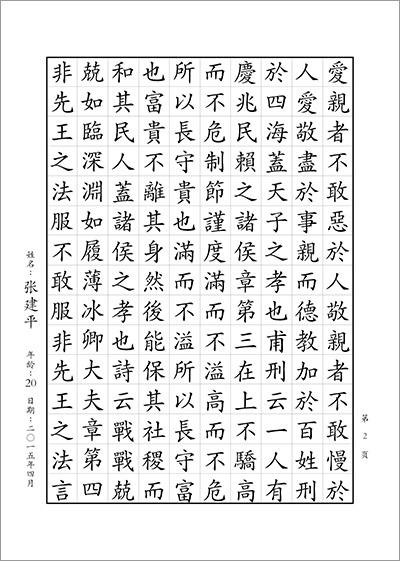 第 2 页
愛親者不敢惡於人敬親者不敢慢於
人愛敬盡於事親而德教加於百姓刑
於四海蓋天子之孝也甫刑云一人有
慶兆民賴之諸侯章第三在上不驕高
而不危制節謹度滿而不溢高而不危
所以長守貴也滿而不溢所以長守富
也富貴不離其身然後能保其社稷而
和其民人蓋諸侯之孝也詩云戰戰兢
兢如臨深淵如履薄冰卿大夫章第四
非先王之法服不敢服非先王之法言
姓名：张建平 年龄：20 日期：二〇一五年四月